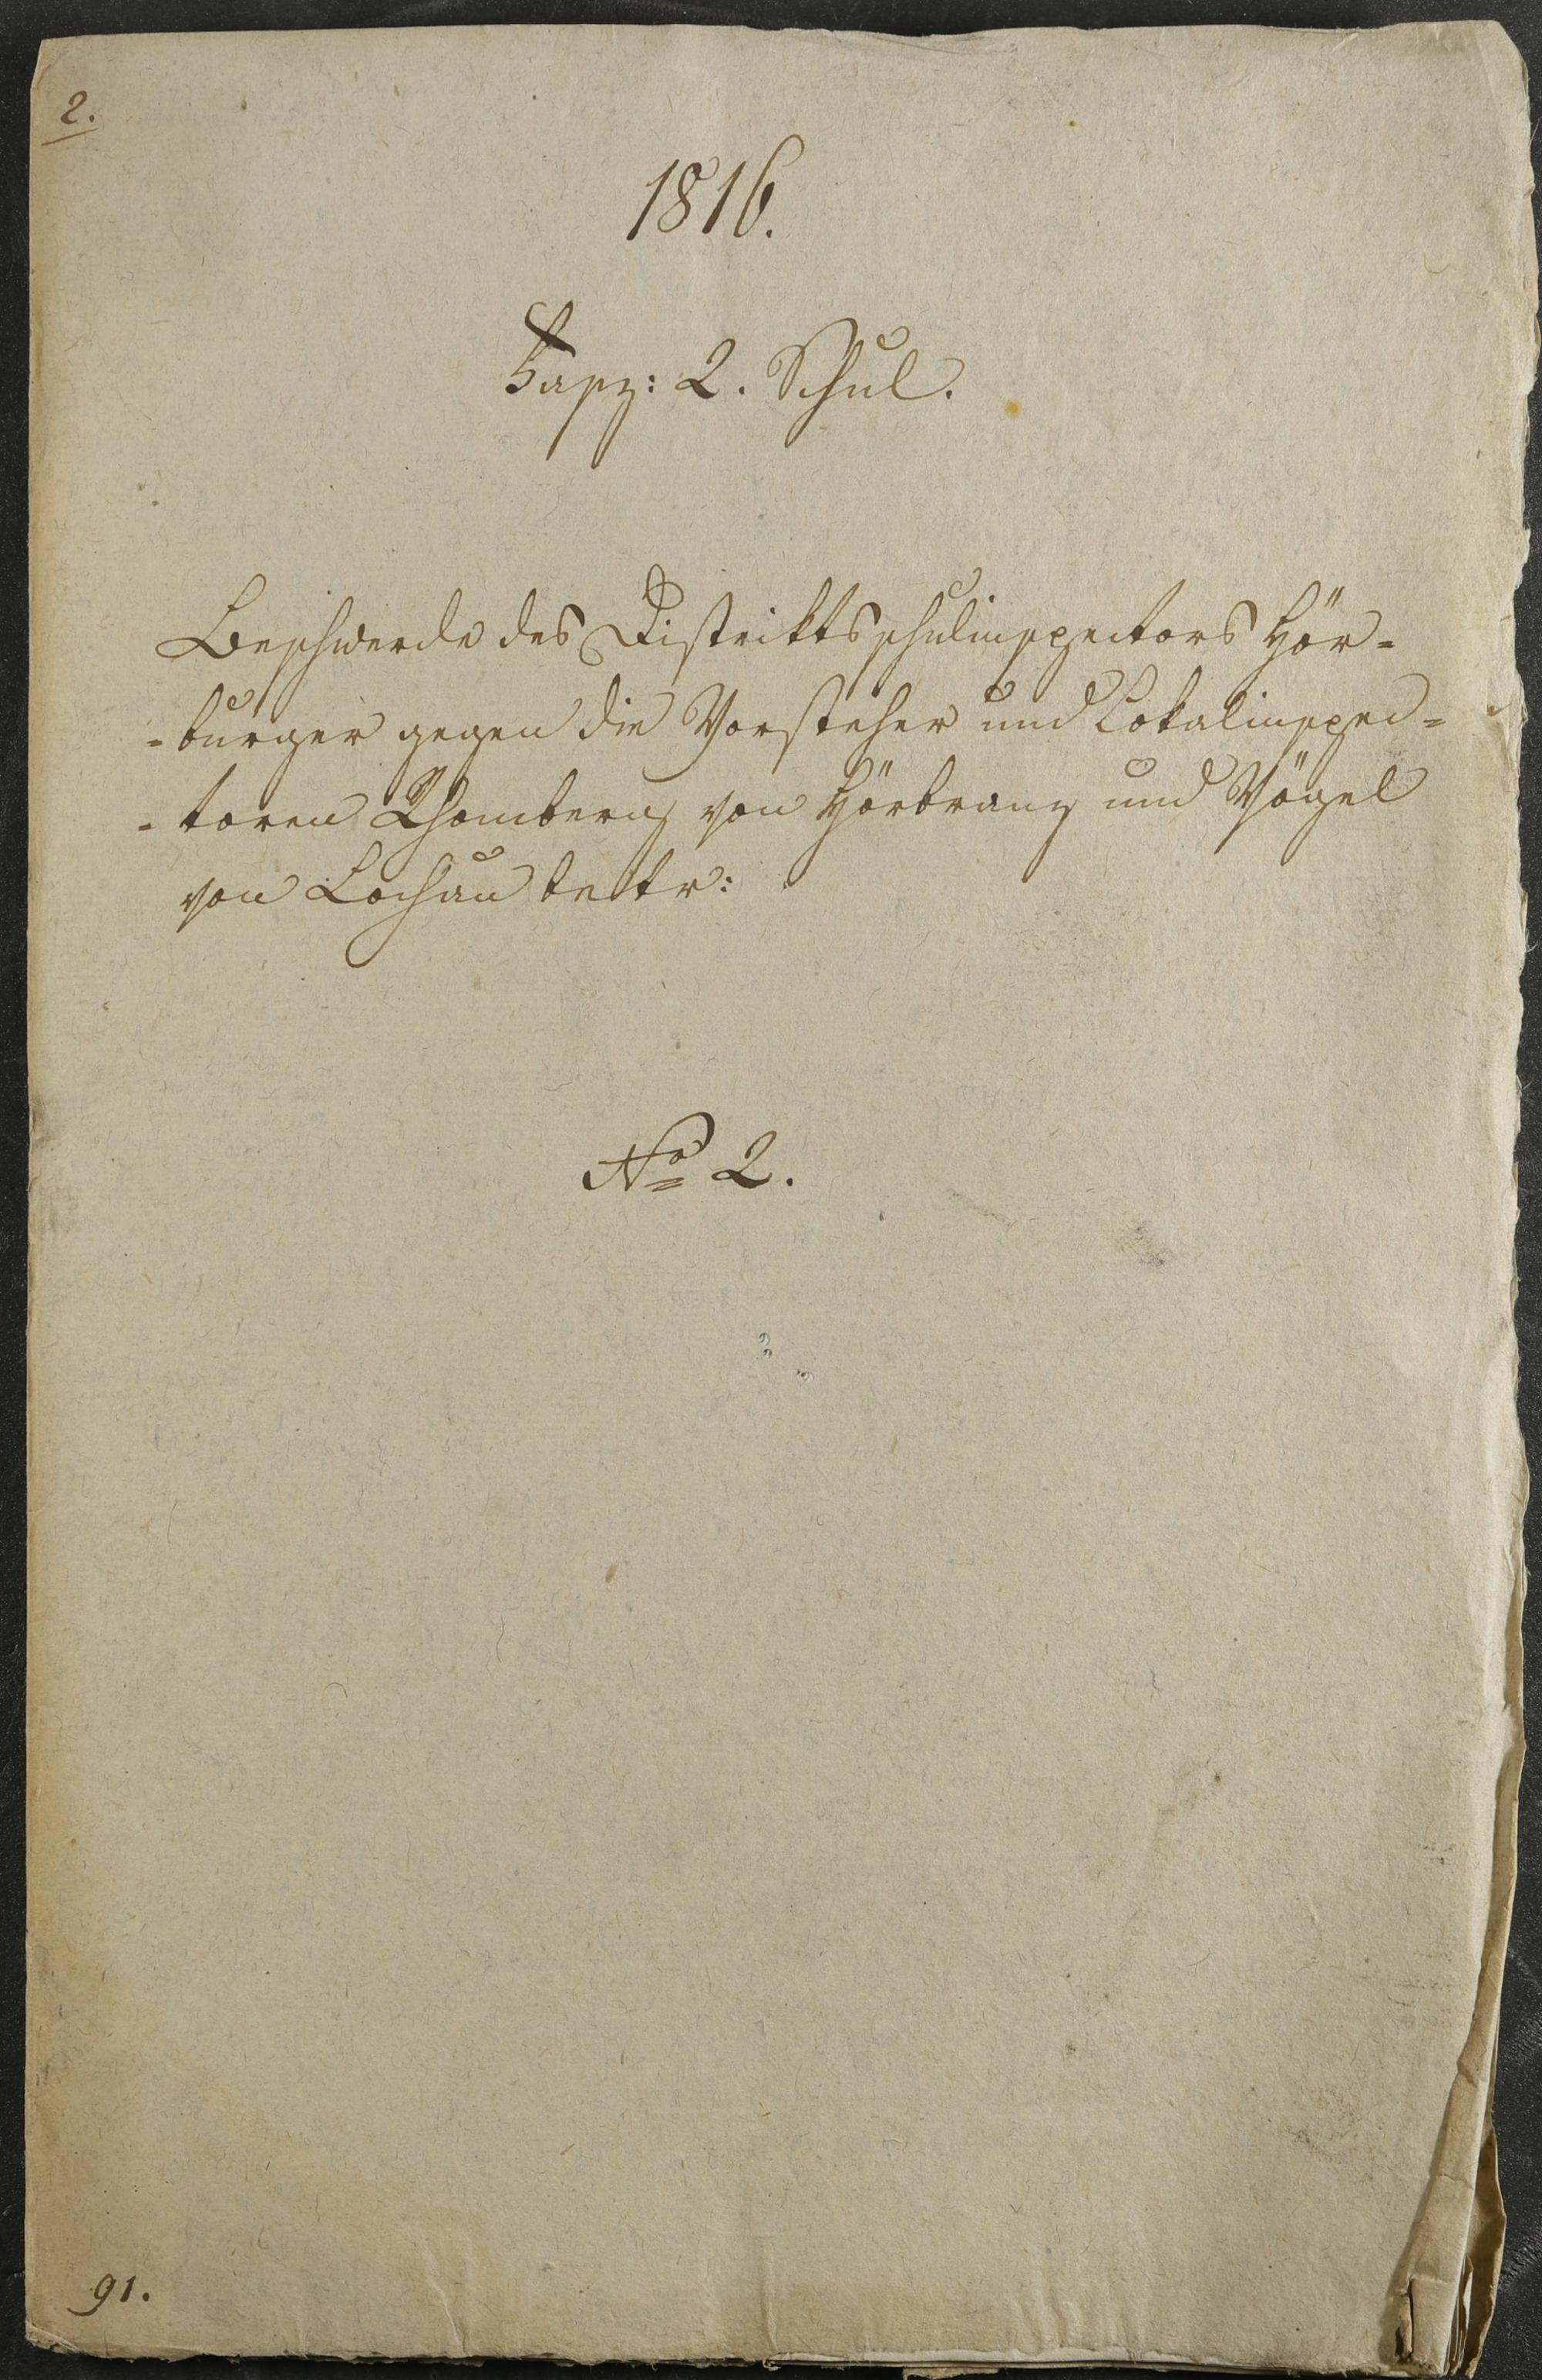 2.
1816.
Fasz: 2. Schul.
Beschwerde des Distriktsschulinspectors Hör=
=burger gegen die Vorsteher und Lokalinspec=
=toren Rhomberg von Hörbranz und Vögel
von Lochau betr:
No 2.
91.